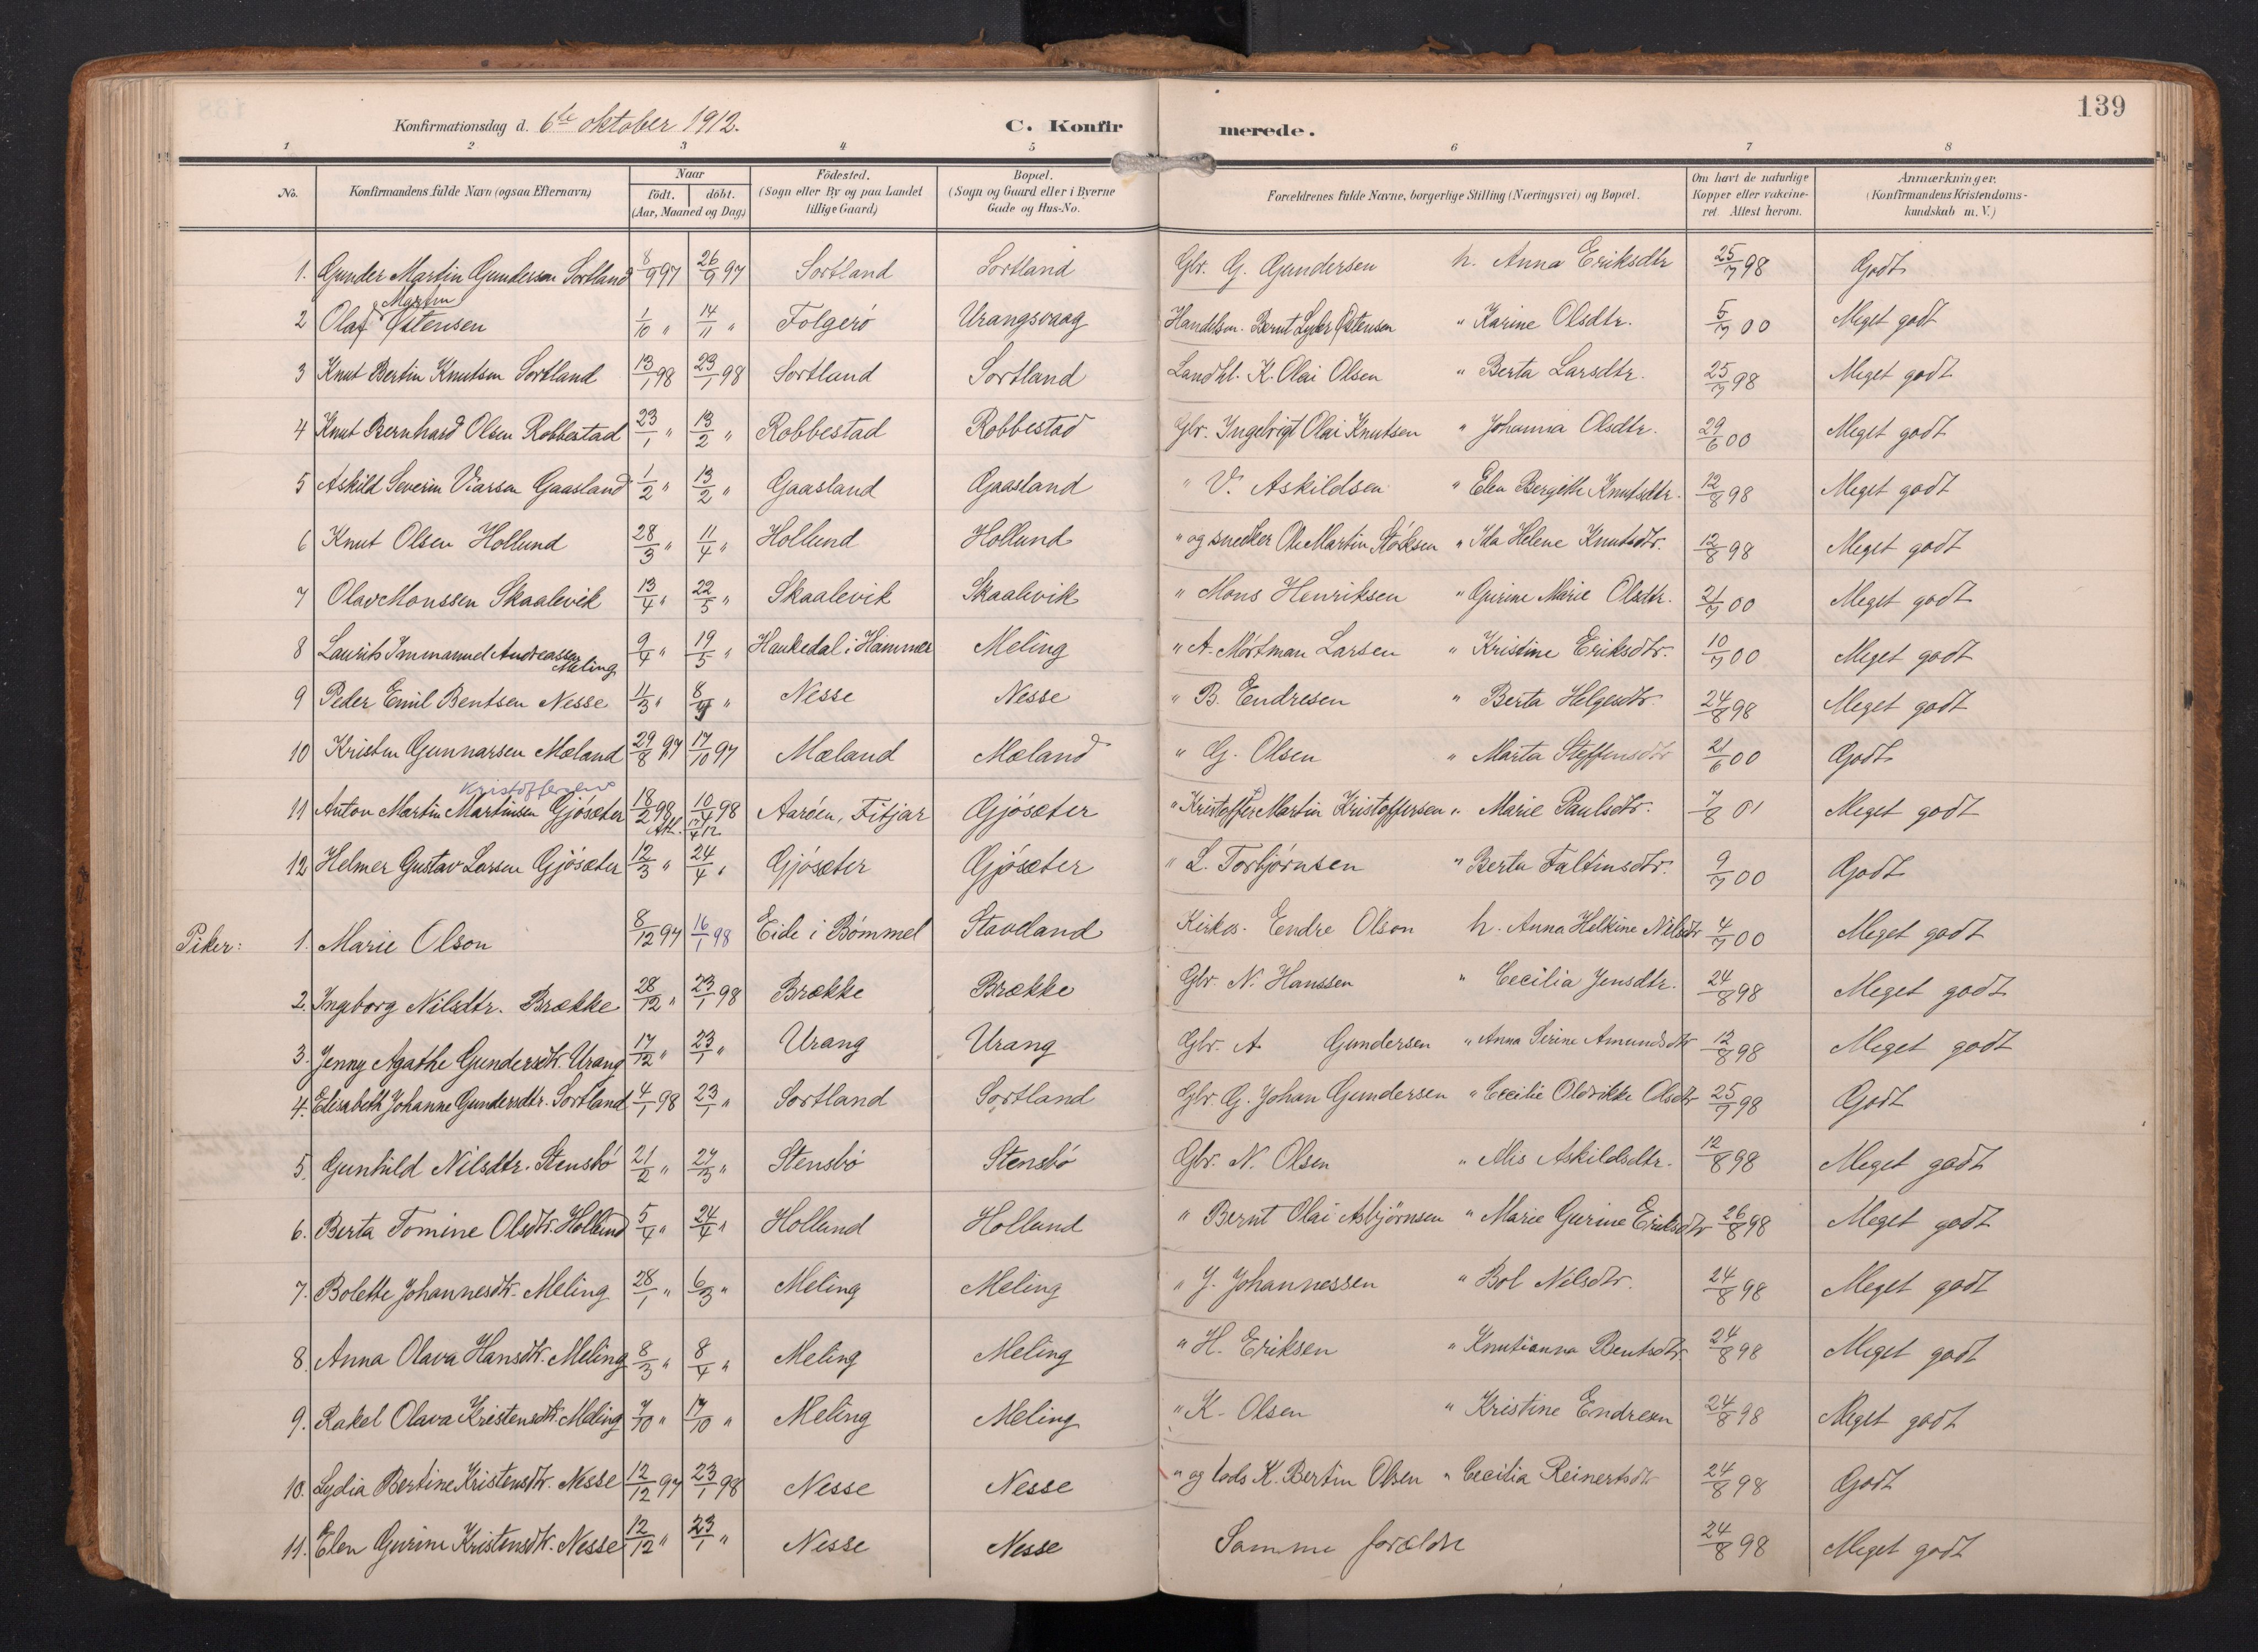 139
Konfirmationsdag d. 6te oktober 1912. C. Konfir merede.
1 2 3 4 5 6 7 8
No. Konfirmandens fulde Navn (ogsaa Efternavn) Naar födt. döbt. (Aar, Maaned og Dag) Födested. (Sogn eller By og paa Landet tillige Gaard) Bopæl. (Sogn og Gaard eller i Byerne Gade og Hus-No. Forældrenes fulde Navne, borgerlige Stilling (Næringsvei) og Bopæl. Om havt de naturlige Kopper eller vakcineret. Attest herom. Anmærkninger. (Konfirmandens Kristendomskundskab m. V.)
1. Gunder Martin Gundersen Sortland 8/9 97 26/9 97 Sortland Sortland Gbr. G. Gundersen h. Anna Eriksdtr 25/7 98 Godt
Martin
2 Olaf Østensen 1/10 " 14/11 " Folgerö Urangsvaag Handelsm. Bernt Lyder Østensen " Karine Olsdtr. 5/7 00 Meget godt
3 Knut Bertin Knutsen Sortland 13/1 98 23/1 98 Sortland Sortland Landhl. K. Olai Olsen " Berta Larsdtr. 25/7 98 Meget godt
4 Knut Bernhard Olsen Robbestad 23/1 " 13/2 " Robbestad Robbestad Gbr. Ingebrigt Olai Knutsen " Johanna Olsdtr. 29/6 00 Meget godt
5 Askild Severin Viarsen Gaasland 1/2 " 13/2 " Gaasland Gaasland " V. Askildsen " Elen Bergitte Knutsdtr. 12/8 98 Meget godt
6 Knut Olsen Hollund 28/3 " 11/4 " Hollund Hollund " og snedker Ole Martin " Ida Helene Knutsdtr. 12/8 98 Meget godt
7 Olav Monssen Skaalevik 13/4 " 22/5 " Skaalevik Skaalevik " Mons Henriksen " Gurine Marie Olsdtr. 21/7 00 Meget godt
8 Laurits Immanuel Andreassen Meling 9/4 " 19/5 " Haukedal i Hammer Meling " A. Mørtman Larsen " Kristine Eriksdtr. 10/7 00 Meget godt
9 Peder Emil Bentsen Nesse 11/3 " 8/4 " Nesse Nesse " B. Endresen " Berta Helgesdtr. 24/8 98 Meget godt
10 Kristen Gunnarsen Mæland 29/8 97 17/10 97 Mæland Mæland " G. Olsen " Marta Steffensdtr 21/6 00 Godt
Kristoffersen
11 Anton Martin Martinsen Gjösæter 18/2 98 10/4 98 Aaröen, Fitjar Gjösæter " Kristoffer Martin Kristoffersen " Marie Paulsdtr. 7/8 01 Meget godt
Att. 17/4 12
12 Helmer Gustav Larsen Gjösæter 12/3 " 24/4 " Gjösæter Gjösæter " L. Torbjørnsen " Berta Faltinsdtr. 9/7 00 Godt
Piker: 1. Marie Olson 8/12 97 16/1 98 Eide i Bømmel Stavland Kirkes. Endre Olson h. Anna Helkine Nilsdtr 4/7 00 Meget godt
2. Ingeborg Nilsdtr. Brække 28/12 " 23/1 98 Brække Brække Gbr. N. Hanssen " Cecilia Jensdtr. 24/8 98 Meget godt
3. Jenny Agathe Gundersdtr. Urang 17/12 " 23/1 " Urang Urang Gbr. A Gundersen " Anna Serine Amundsdtr 12/8 98 Meget godt
4. Elisabeth Johanne Gundersdtr. Sortland 4/1 98 23/1 " Sortland Sortland Gbr. G. Johan Gundersen " Cecilie Oldrikke Olsdtr 25/7 98 Godt
5. Gunhild Nilsdtr. Stensbö 21/2 " 27/3 " Stensbö Stensbö Gbr. N. Olsen " Alis Askildsdtr. 12/8 98 Meget godt
6. Berta Tomine Olsdtr. Hollund 5/4 " 24/4 " Hollund Hollund " Bernt Olai Asbjørnsen " Marie Gurine Eriksdtr 26/8 98 Meget godt
7. Bolette Johannesdtr. Meling 28/1 " 6/3 " Meling Meling " J. Johannessen " Bol Nilsdtr. 24/8 98 Meget godt
8. Anna Olava Hansdtr. Meling 8/3 " 8/4 " Meling Meling " H. Eriksen " Knutianna Bentsdtr 24/8 98 Meget godt
9. Rakel Olava Kristensdtr. Meling 7/10 " 17/10 " Meling Meling " K. Olsen " Kristine Endresen 24/8 98 Meget godt
10. Lydia Bertine Kristensdtr. Nesse 12/12 97 23/1 98 Nesse Nesse " og lods K. Bertin Olsen " Cecilia Reinertsdtr 24/8 98 Godt
11. Elen Gurine Kristensdtr. Nesse 12/12 " 23/1 " Nesse Nesse Samme forældre 24/8 98 Meget godt